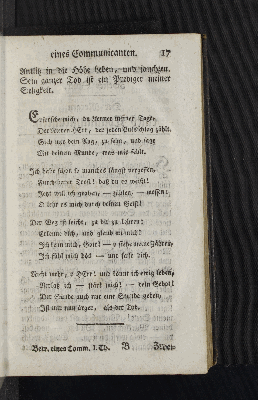 eines Communicanten. 17
Antlitz in die Höhe heben, und jauchzen.
Sein ganzer Tod ist ein Prediger meiner
Seligkeit.
Erforsche mich, du Kenner meiner Tage,
Der jeden Pulsschlag zählt.
Gieb mir dein Aug, zu sehn, und sage
Mir deinen Munde, was mir fehlt.
Ich habe schon so manches längst vergessen,
Trost! daß du es weißt!
Jetzt will ich graben, — zählen, — messen,
O lehr es mich durch deinen Geist!
Der Weg ist leicht, zu dir zu kehren!
Erkenne dich, und glaub an mich!
Ich kam mich, Gott! — o siehe meine Zähren,
Ich fühl mich das — und fasse dich.
Nicht mehr, o HErr! und könnt ich ewig leben,
Verlaß ich — stärk mich! — dein Gebot!
Der Sünde auch nur eine Stunde geben,
Ist mir nun ärger, als der Tod.
Betr. eines Comm. I. Th. B Zwey-